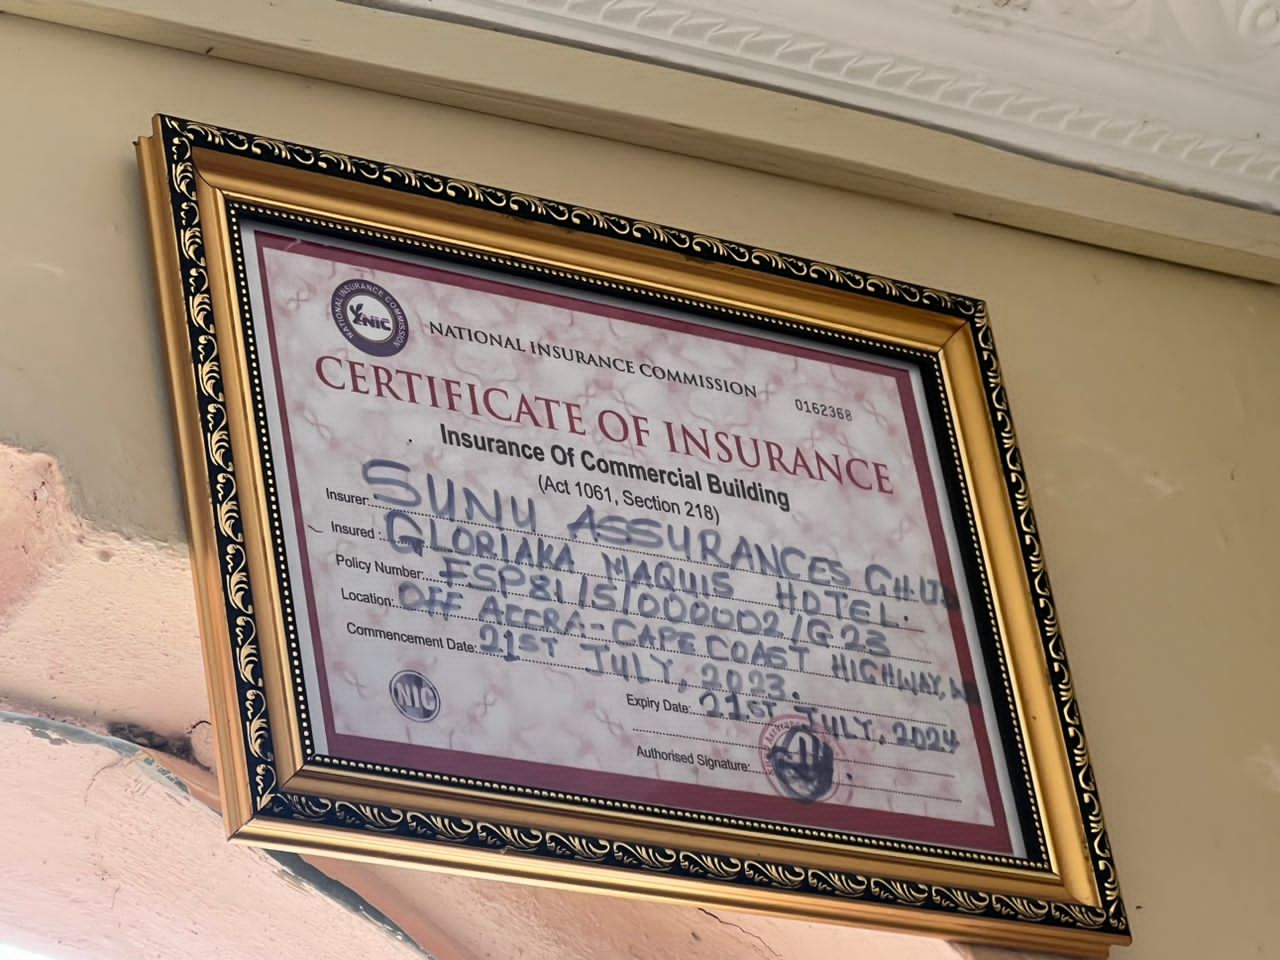 NATIONAL INSURANCE COMMISSION
NIC
NATIONAL INSURANCE COMMISSION
0162368
CERTIFICATE OF INSURANCE
Insurance Of Commercial Building
(Act 1061, Section 218)
Insurer: SUNU ASSURANCES GH. LTD
Insured: GLORIAKA MAQUIS HOTEL.
Policy Number FSP81/5/000002/G23
Location: OFF ACCRA-CAPE COAST HIGHWAY,
Commencement Date: 21ST JULY, 2023.
Expiry Date: 21ST JULY, 2024
NIC
Authorised Signature: